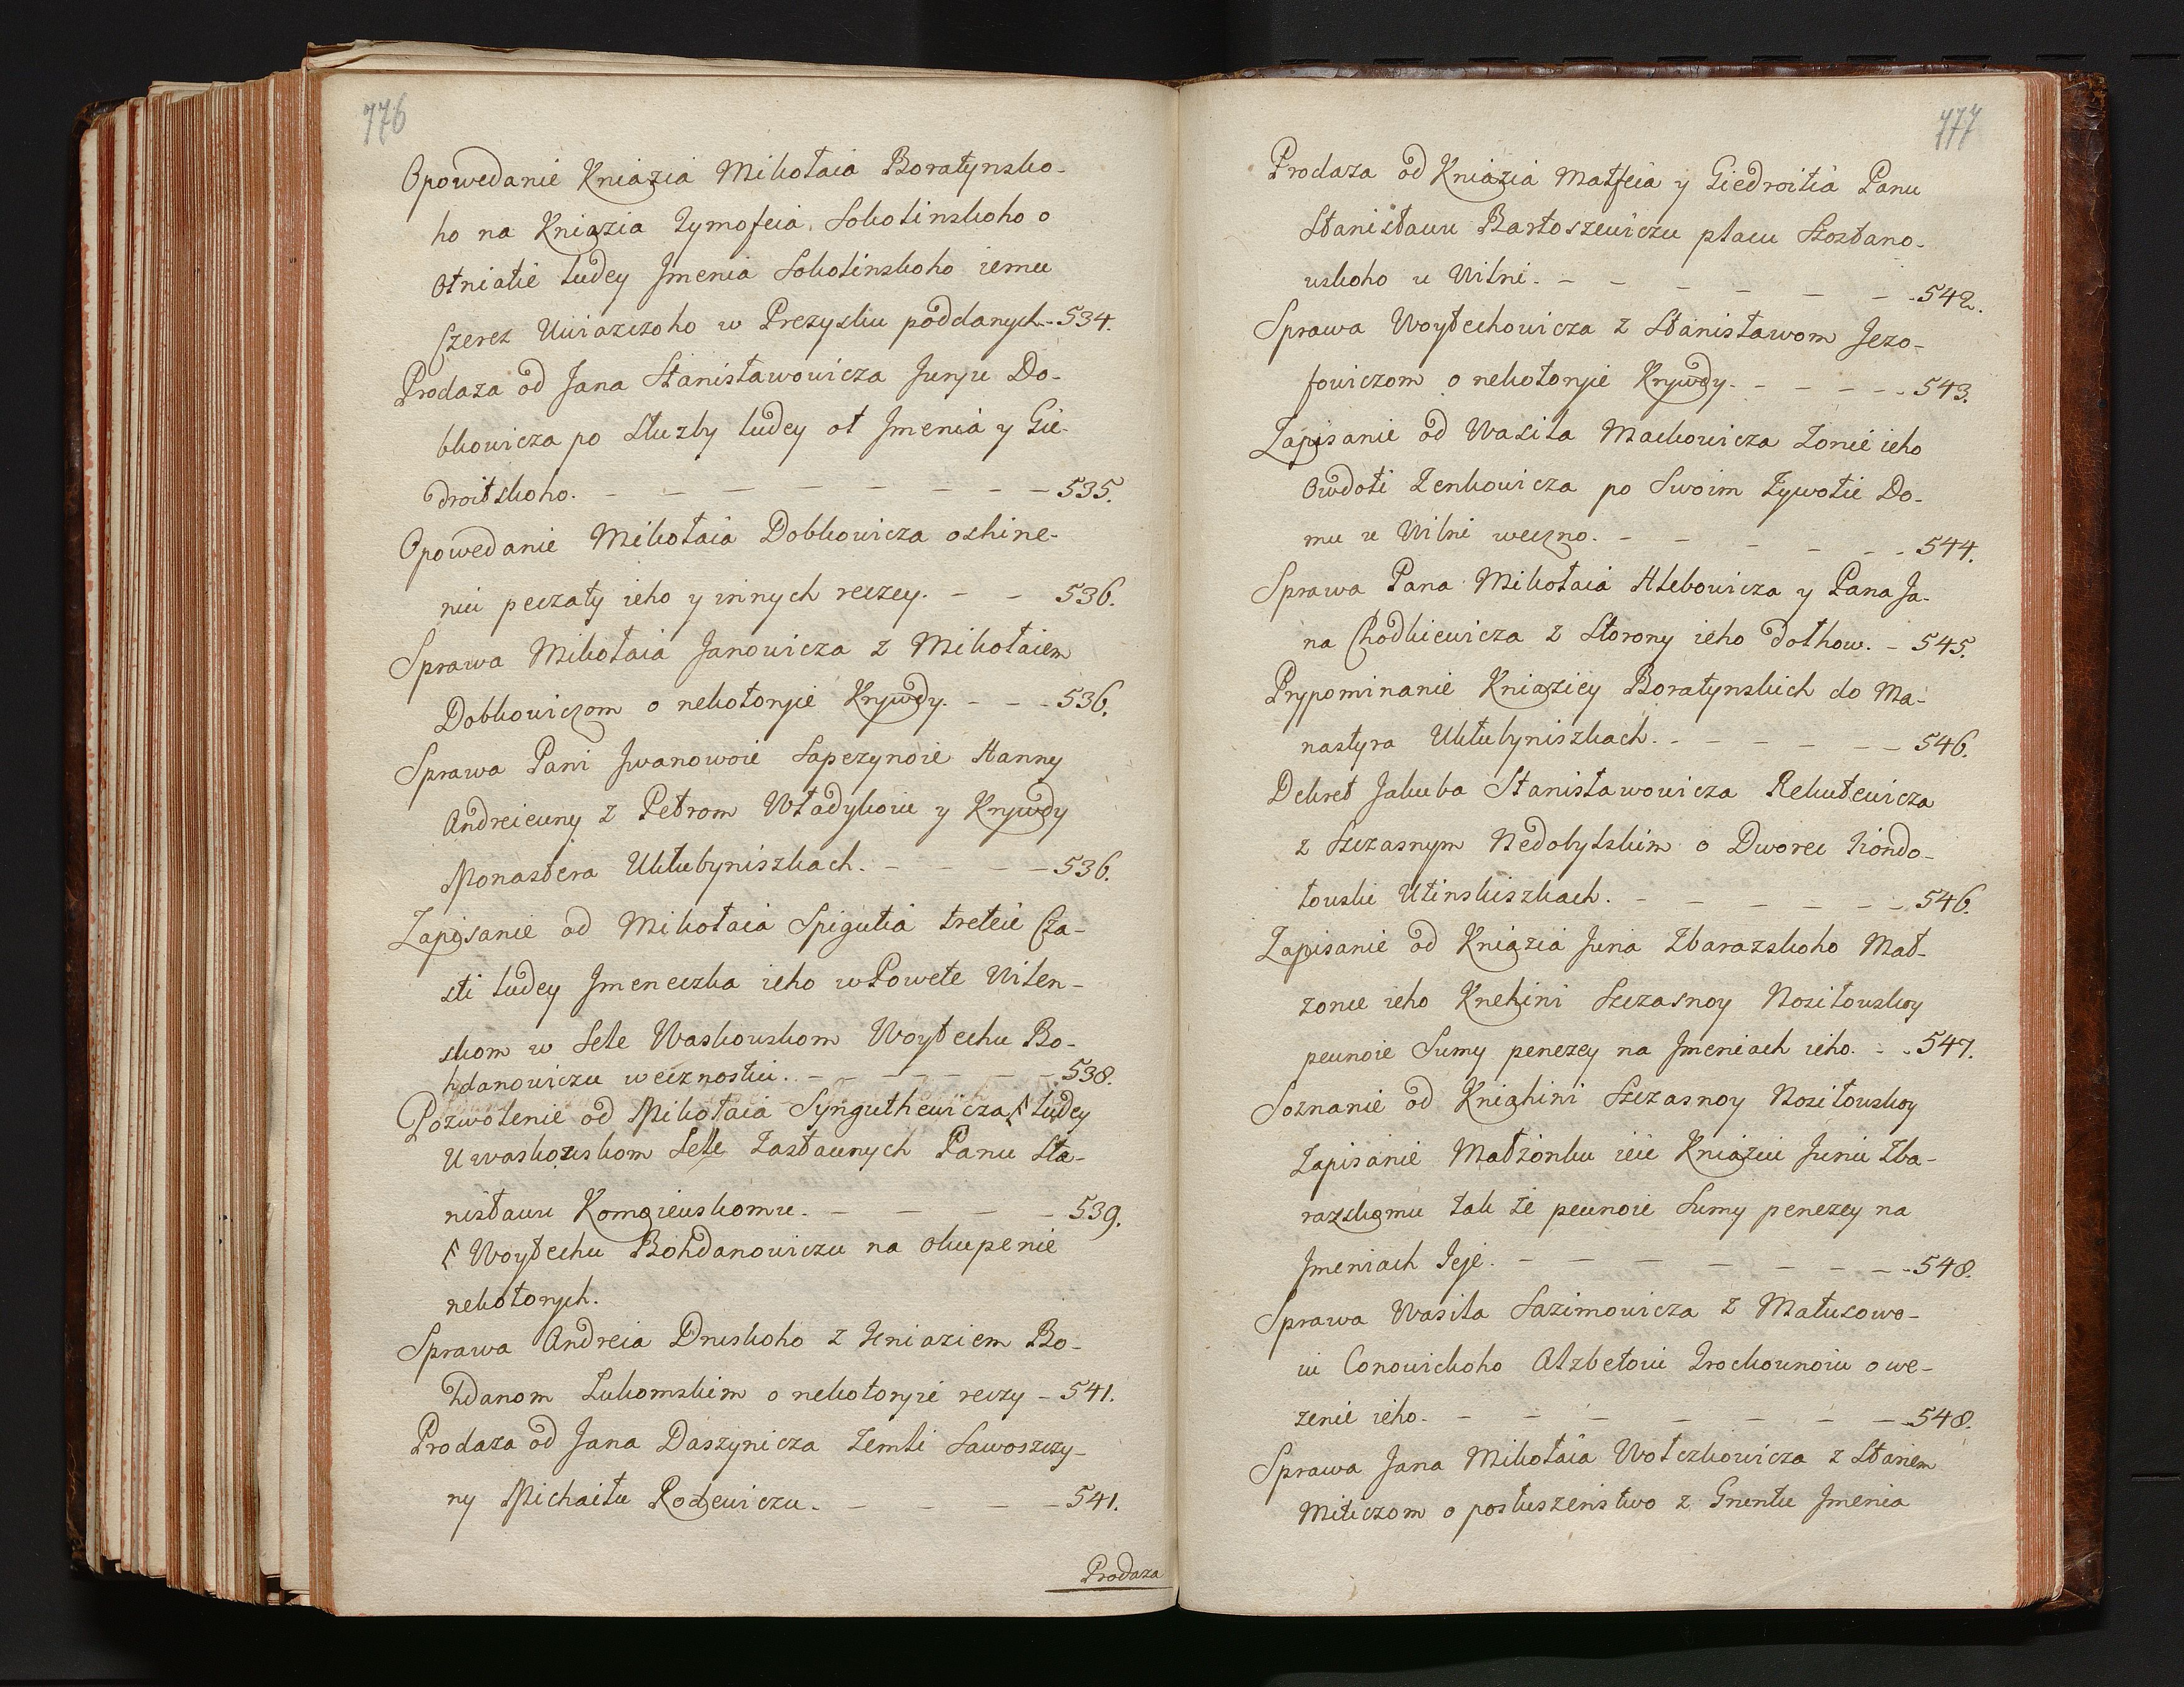 776
Opowedanie Kniazia Mikołaia Boratynsko-
ho na Kniazia Tymofeia Sokolinskoho o
otniatie ludey Jmenia Sokolinskoho iemu
Czerez Uwiazczoho w Prezysku poddanych - 534.
Prodaza od Jana Stanisławowicza Jurju Do-
bkowicza po służby ludey ot Jmenia y Gie-
droitskoho. - - - - - - - - 535.
Opowedanie Mikołaia Dobkowicza oshine-
nii peczaty ieho y innych reczey. - - 536.
Sprawa Mikołaia Janowicza z Mikołaiem
Dobkowiczom o nekotoryie Krywdy. - - - 536.
Sprawa Pani Jwanowoie Sapezynoie Hanny
Andreiewny z Petrom Władykoiu y Krywdy
Monastera Ukłubyniszkach. - - - - 536.
Zapisanie od Mikołaia Spigulia treteie Cza-
sti ludey Jmeneczka ieho w Powete Wilen-
skom w Sele Waskowskom Woytechu Bo-
hdanowiczu wecznostiu. - - - - - - 538.
Pozwolenie od Mikołaia Synguthewicza ludey
Uwaskowskom Sele Zastawnych Panu Sta-
nisławu Komaiewskomu. - - - - - 539.
Woytechu Bohdanowiczu na okupenie
nekotorych.
Sprawa Andreia Druskoho z Kniaziem Bo-
hdanom Lukomskim o nekotoryie reczy - 541.
Prodaza od Jana Daszynicza Zemli Sawoszczy-
ny Michaiłu Rodzewiczu. - - - - - 541.
Prodaza
777
Prodaza od Kniazia Matfeia y Giedroitia Panu
Stanisławu Bartoszewiczu płacu Szostano-
wskoho u Wilni. - - - - - - - 542.
Sprawa Woytechowicza z Stanisławom Jezo-
fowiczom o nekotoryie Krywdy. - - - - - 543.
Zapisanie od Wasila Mackowicza Zonie ieho
Owdoti Zenkowicza po Swoim Zywotie Do-
mu u Wilni weczno. - - - - - - 544.
Sprawa Pana Mikołaia Hlebowicza y Pana Ja-
na Chodkiewicza z Storony ieho dołhow. - 545.
Prypominanie Kniaziey Boratynskich do Ma-
nastyra Ukłubyniszkach. - - - - - - 546.
Dekret Jakuba Stanisławowicza Rekutewicza
z Szczasnym Nedobylskim o Dworec
towski Utinskiszkach. - - - - - - 546.
Zapisanie od Kniazia Juria Zbarazskoho Mał-
zonce ieho Knehini Szczasnoy Nosiłowskoy
pewnoie Sumy penezey na Jmeniach ieho. - - 547.
Soznanie od Kniahini Szczasnoy Nosiłowskoy
Zapisanie Małżonku ieie Kniaziu Juriu Zba-
razskomu tak że pewnoie Sumy penezey na
Jmeniach Jeje. - - - - - - - - 548.
Sprawa Wasila Sazimowicza z Matusowo-
iu Conowickoho Alzbetoiu Trockownoiu o we-
zenie ieho. - - - - - - - - 548.
Sprawa Jana Mikołaia Wołczkowicza z Stanem
Miticzom o posłuszenstwo z Gruntu Jmenia